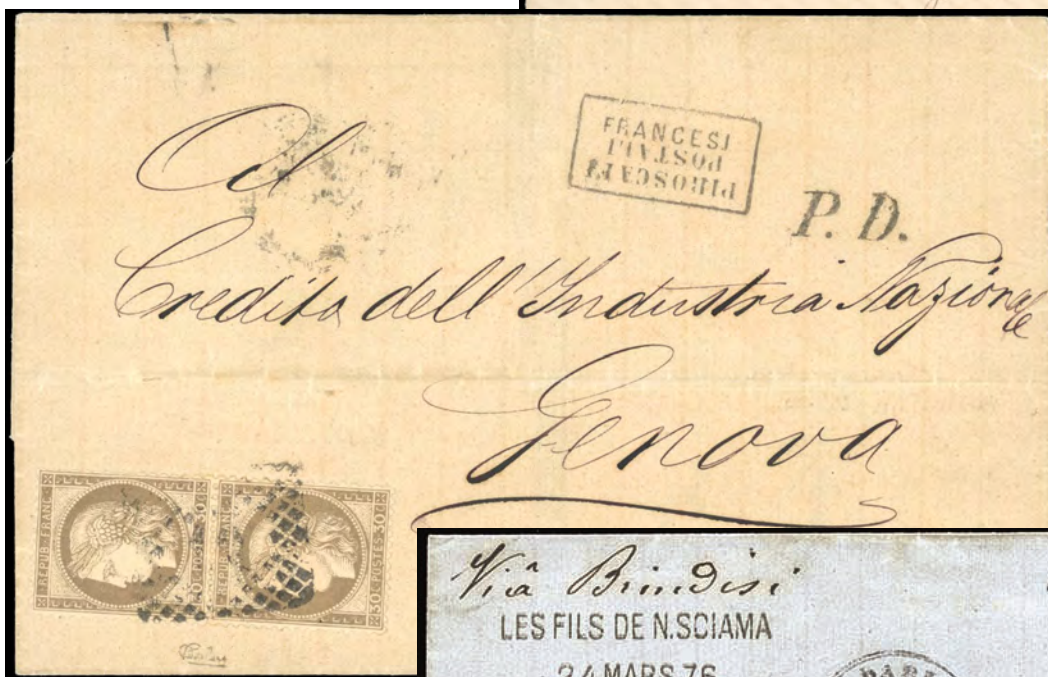 FRANCESI
POSTALI
PIROSCAFI
P. D.
Al
Credito dell'Industria Nazionale
Genova
REPUB·FRANC·
30 C POSTES 30 C
REPUB·FRANC·
30 C POSTES 30 C
Viâ Brindisi
LES FILS DE N.SCIAMA
24 MARS 76
PARI